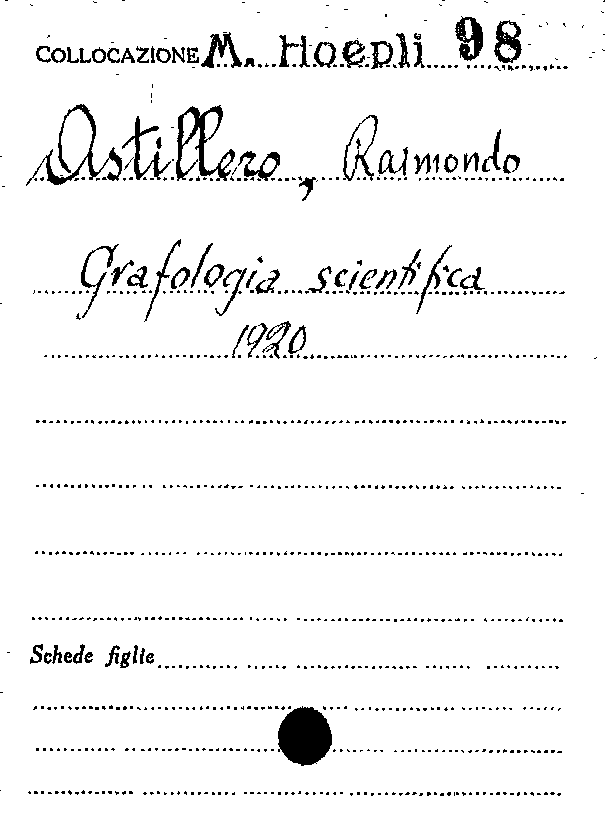 COLLOCAZIONE M. Hoepli 98
Astillero, Raimondo
Grafologia scientifica
1920
Schede figlie